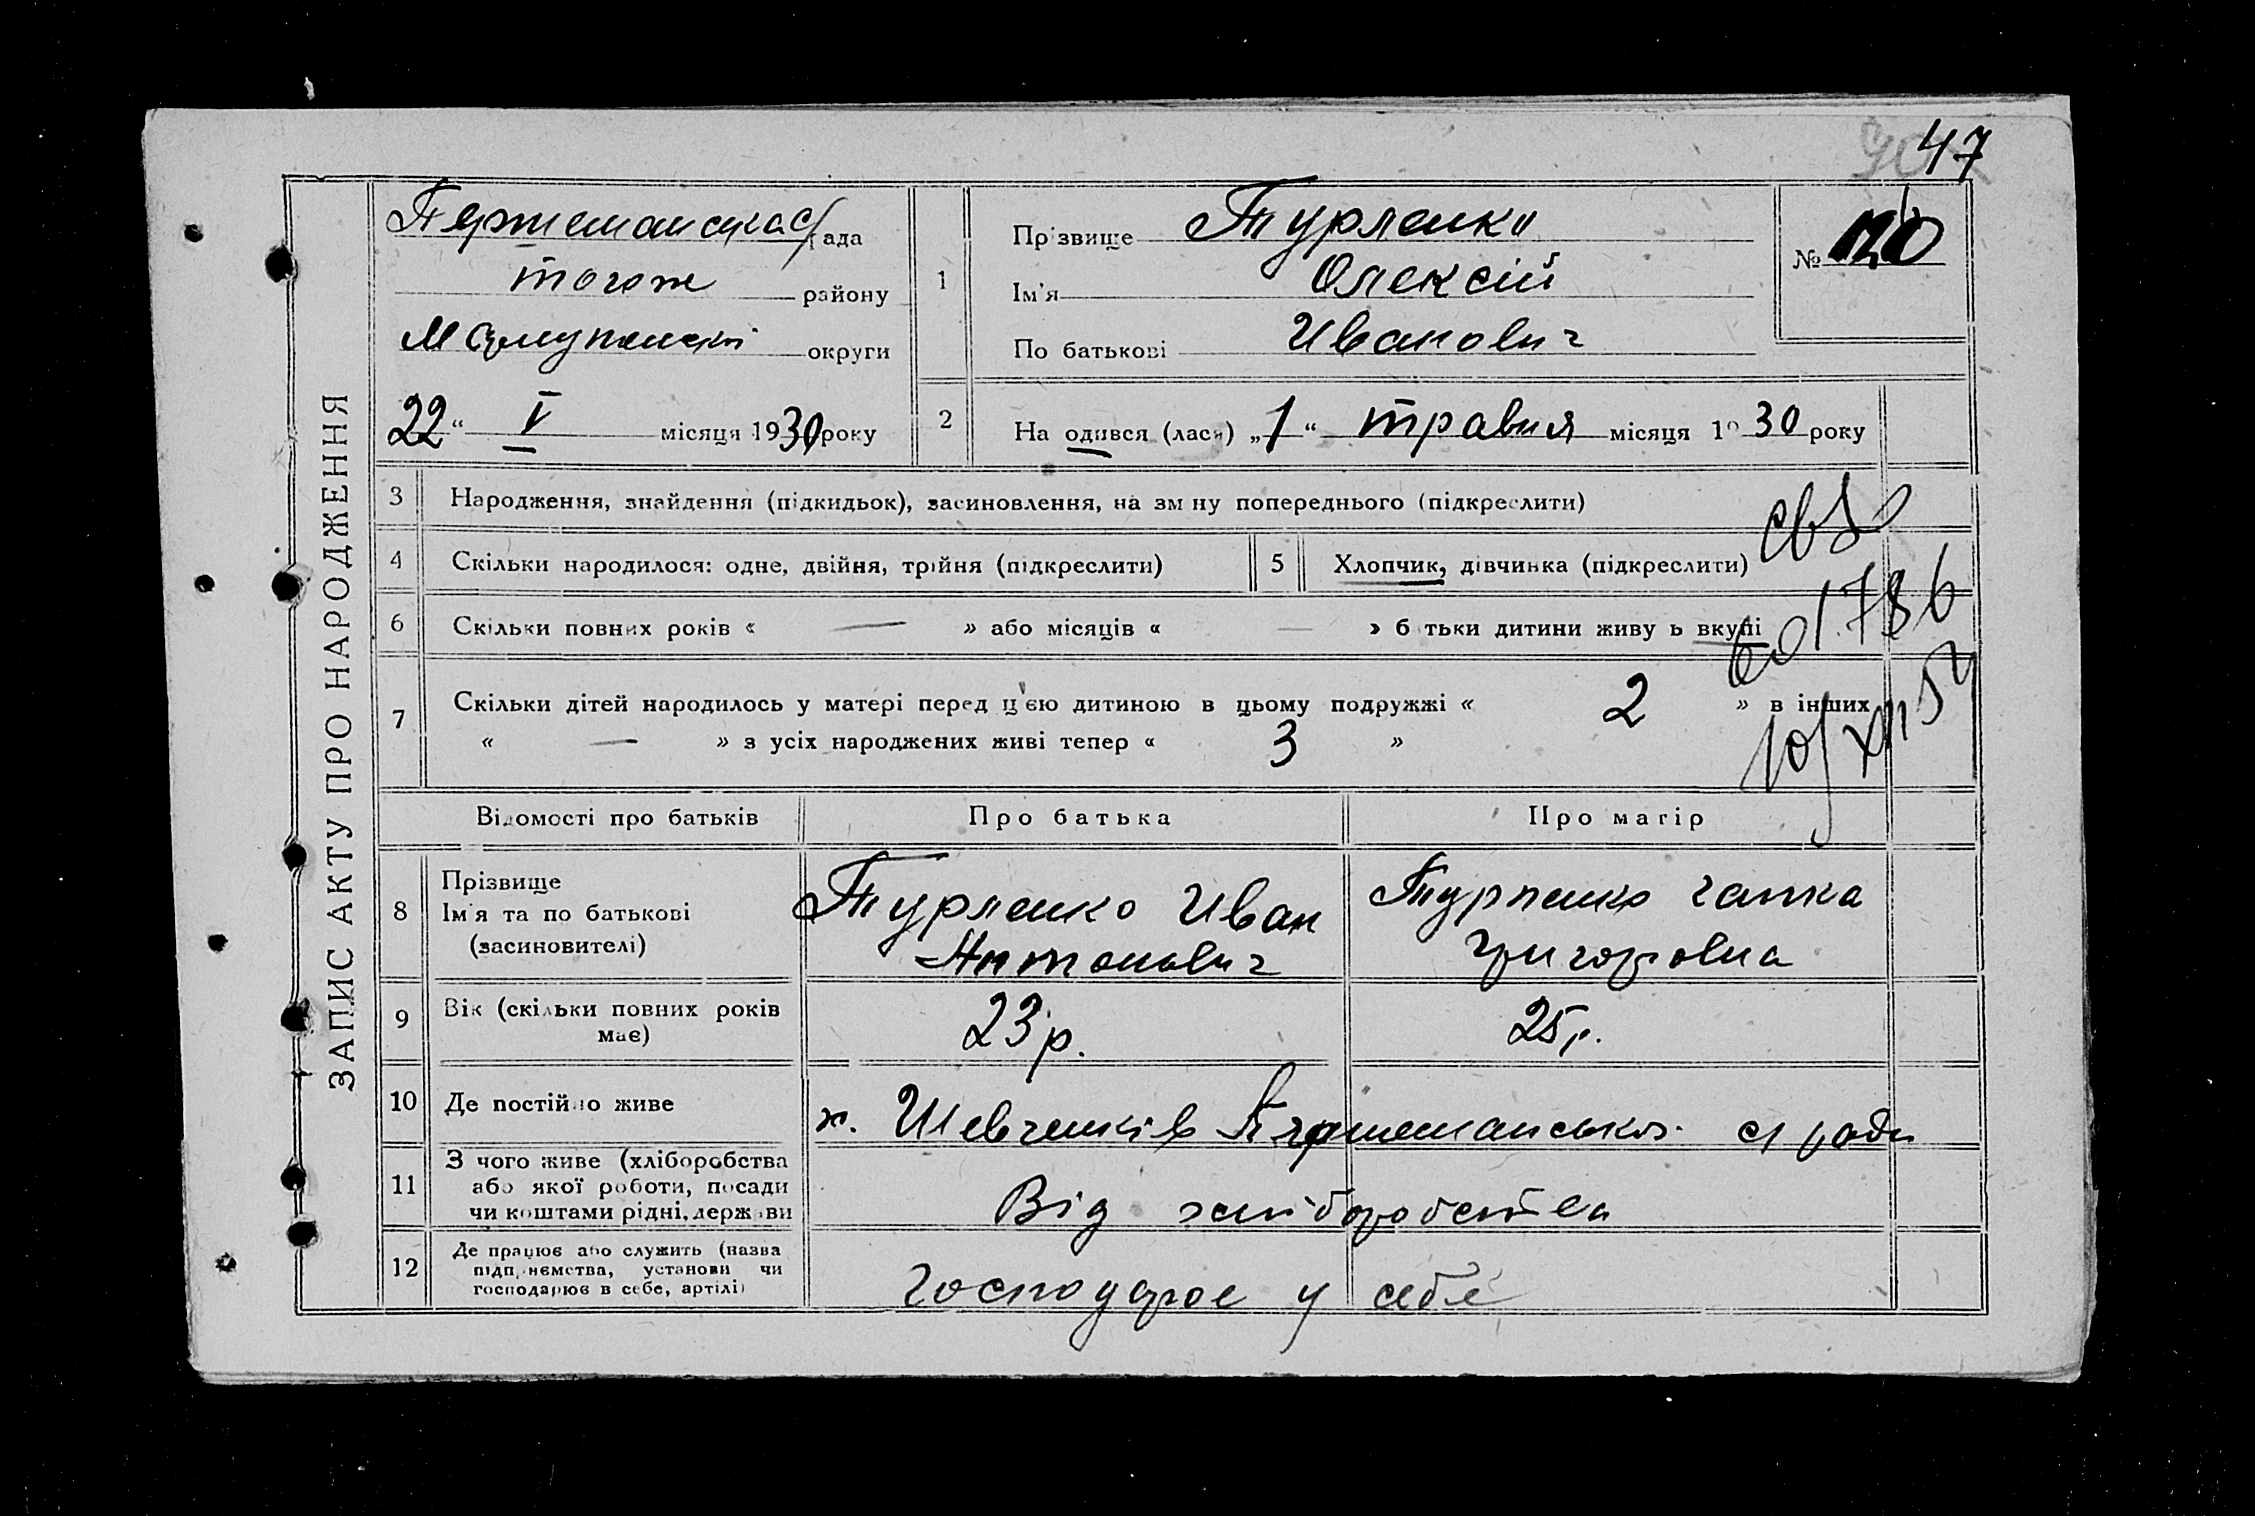 47
ЗАПИС АКТУ ПРО НАРОДЖЕННЯ
рада
тогож району
округи
22 " V місяця 1930 року
1
Прізвище Турленко
Ім'я Олексій
По батькові Иванович
№
2 Народився (лася) „1" травня місяця 1930 року
3 Народження, знайдення (підкидьок), засиновлення, на зміну попереднього (підкреслити)
4 Скільки народилося: одне, двійня, трійня (підкреслити) 5 Хлопчик, дівчинка (підкреслити)
6 Скільки повних років « — » або місяців « — » батьки дитини живуть вкупі
7 Скільки дітей народилось у матері перед ц'єю дитиною в цьому подружжі « 2 » в інших
« — » з усіх народжених живі тепер « 3 »
Відомості про батьків Про батька Про матір
8 Прізвище
Ім'я та по батькові
(засиновителі)
Турленко Иван
Антонович
Турленко Ганка
Григоровна
9 Вік (скільки повних років
має)
23 р. 25 р.
10 Де постійно живе
х. Шевченків с/ради
11 З чого живе (хліборобства
або якої роботи, посади
чи коштами рідні, держави
Від хліборобства
12 Де працює або служить (назва
підприємства, установи чи
господарює в себе, артілі)
Господарює у себе